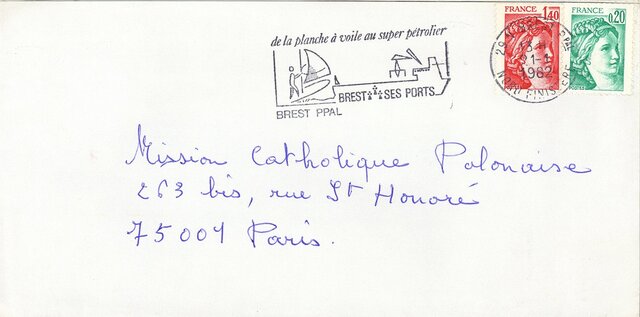 de la planche à voile au super pétrolier
BREST SES PORTS
BREST PPAL
FRANCE
1,40
FRANCE
0,20
1982
NORD FINISTERE
Mission Catholique Polonaise
263 bis, rue St Honoré
75001 Paris.